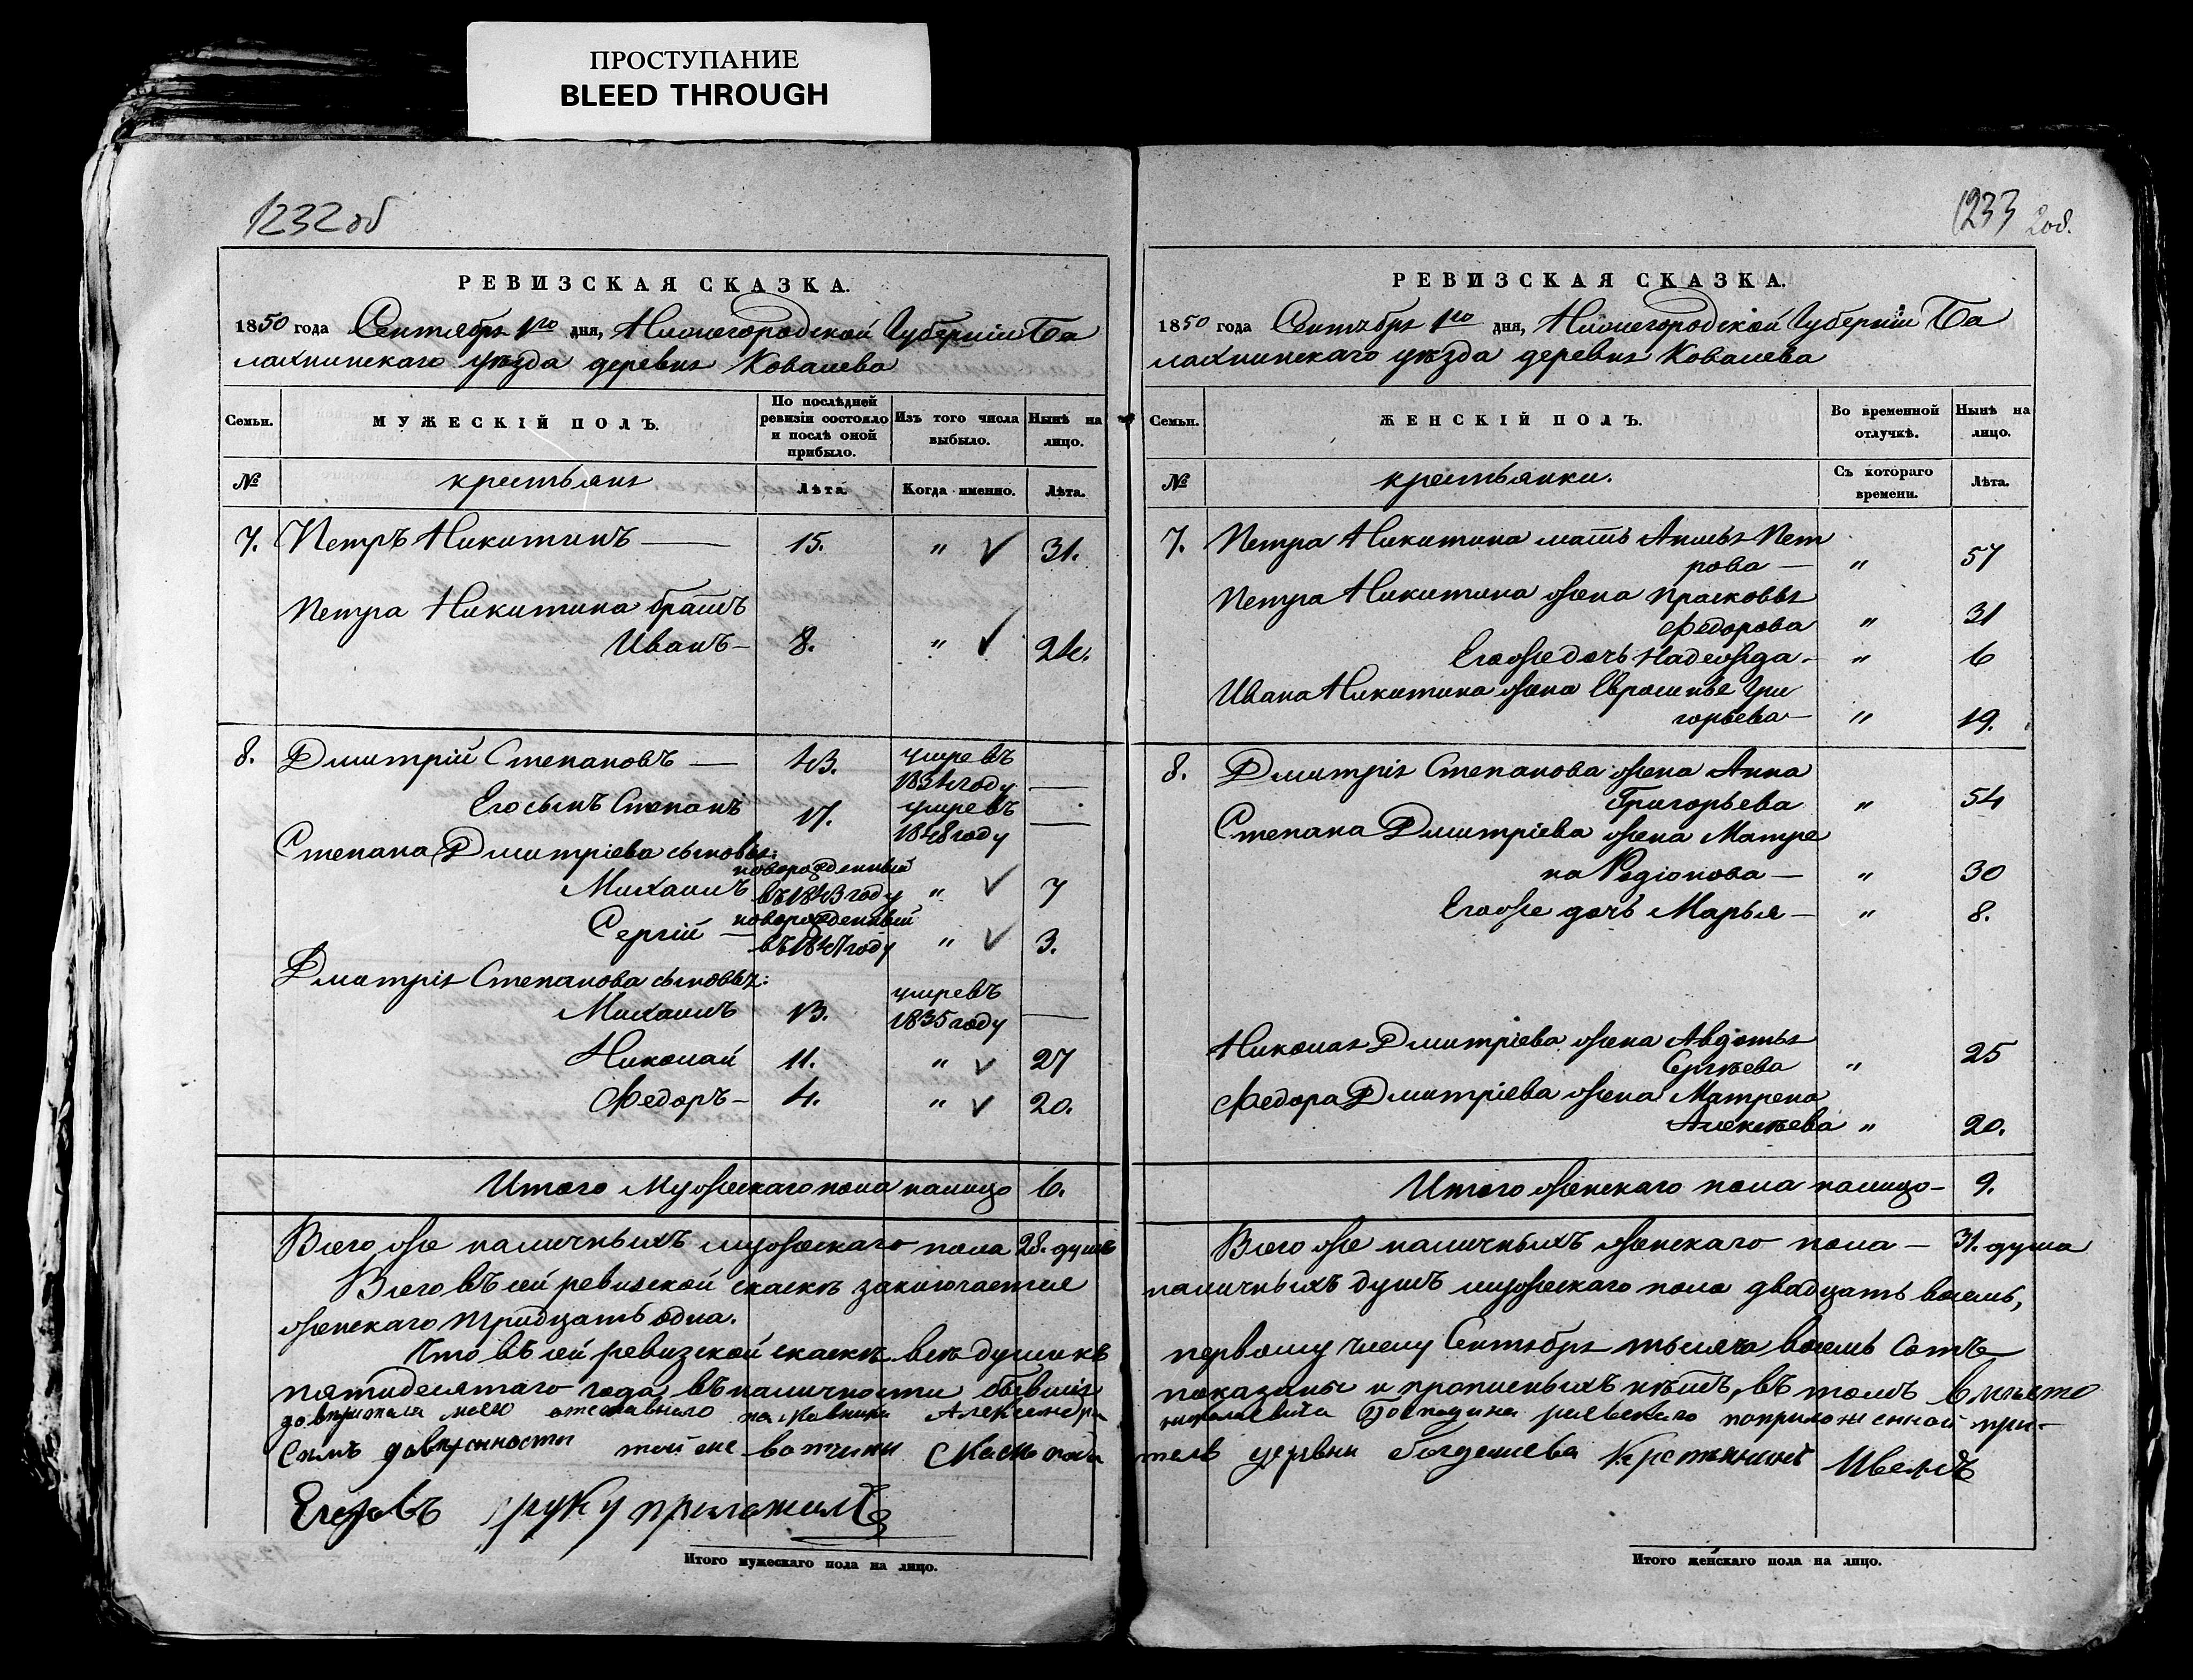 ПРОСТУПАНИЕ
BLEED THROUGH
1232 об
РЕВИЗСКАЯ СКАЗКА.
1850 года Сентября 1го дня, Нижегородской Губерніи Ба
лахнинскаго уѣзда деревня Ковалева
Семьи.
МУЖЕСКІЙ ПОЛЪ.
По послѣдней
ревизіи состояло
и послѣ оной
прибыло.
Изъ того числа
выбыло.
Нынѣ на
лицо.
№ крестьяня Лѣта. Когда именно. Лѣта.
7. Петръ Никитинъ — 15. " 31.
Петра Никитина братъ
Иванъ — 8. " 24.
8. Дмитрій Степановъ — 43. умре въ
1834 году —
Его сынъ Степанъ 17. умре въ
1848 году —
Степана Дмитріева сыновья:
новорожденный
Михаилъ въ 1843 году " 7
новорожденный
Сергій — въ 1847 году " 3.
Дмитрія Степанова сыновья:
Михаилъ 13. умре въ
1835 году —
Николай 11. " 27
Федоръ — 4. " 20.
Итого Мужескаго пола налицо 6.
Всего же наличныхъ мужескаго пола 28. душъ
Всего въ сей ревизской скаскѣ заключается
женскаго тридцать одна.
Что въ сей ревизской скаскѣ всѣ души къ
пятидесятаго года въ наличности бывшія
довѣрителя моего отставнаго полковника Александра
Силъ довѣренности той же вотчины
Егоровъ руку приложилъ
Итого мужескаго пола на лицо.
1233 2об.
РЕВИЗСКАЯ СКАЗКА.
1850 года Сентября 1го дня, Нижегородской Губерніи Ба
лахнинскаго уѣзда деревня Ковалева
Семьи.
ЖЕНСКІЙ ПОЛЪ.
Во временной
отлучкѣ.
Нынѣ на
лицо.
№ крестьянки. Съ котораго
времени. Лѣта.
7. Петра Никитина мать Анисья Пет
рова — " 57
Петра Никитина жена Прасковья
Федорова " 31
Егоже дочь Надежда — " 6
Ивана Никитина жена Евросинья Гри
горьева — " 19.
8. Дмитрія Степанова жена Анна
Григорьева " 54
Степана Дмитріева жена Матре
на Родіонова — " 30
Егоже дочь Марья — " 8.
Николая Дмитріева жена Авдотья
Сергѣева " 25
Федора Дмитріева жена Матрена
Алексѣева " 20.
Итого женскаго пола налицо — 9.
Всего же наличныхъ женскаго пола — 31. душа
наличныхъ душъ мужескаго пола двадцать восемь,
первому числу Сентября тысяча восемь сотъ
показаны и прописныхъ нѣтъ, въ томъ вместо
Господина по приложенной при-
деревни крестьянинъ Иванъ
Итого женскаго пола на лицо.